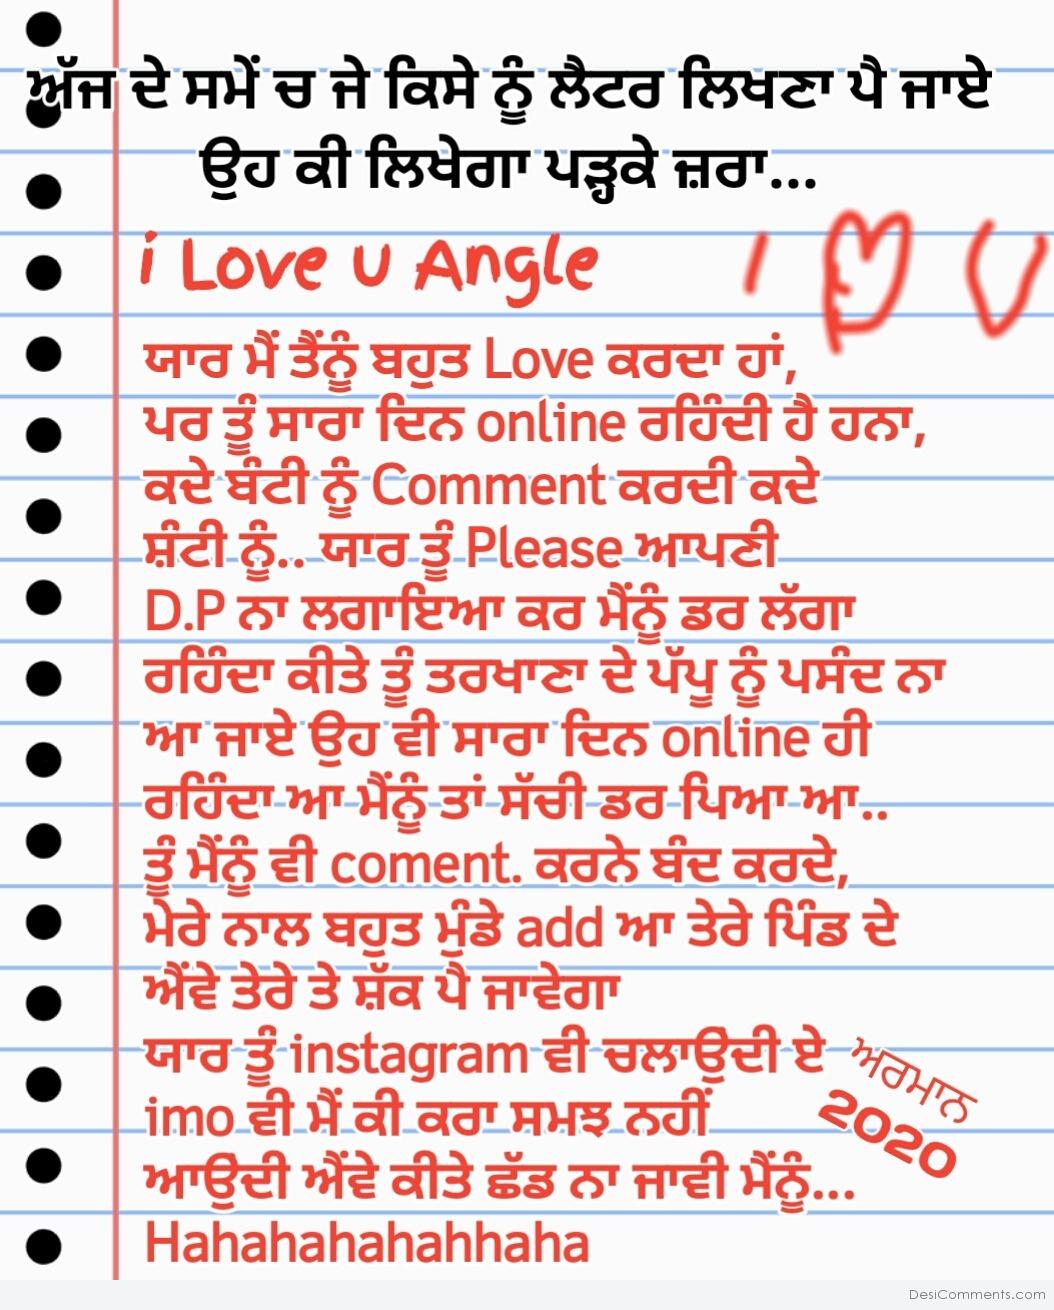 ਅੱਜ ਦੇ ਸਮੇਂ ਚ ਜੇ ਕਿਸੇ ਨੂੰ ਲੈਟਰ ਲਿਖਣਾ ਪੈ ਜਾਏ
ਉਹ ਕੀ ਲਿਖੇਗਾ ਪੜ੍ਹਕੇ ਜ਼ਰਾ...
i Love u Angle
I U
ਯਾਰ ਮੈਂ ਤੈਂਨੂੰ ਬਹੁਤ Love ਕਰਦਾ ਹਾਂ,
ਪਰ ਤੂੰ ਸਾਰਾ ਦਿਨ online ਰਹਿੰਦੀ ਹੈ ਹਨਾ,
ਕਦੇ ਬੰਟੀ ਨੂੰ Comment ਕਰਦੀ ਕਦੇ
ਸ਼ੰਟੀ ਨੂੰ.. ਯਾਰ ਤੂੰ Please ਆਪਣੀ
D.P ਨਾ ਲਗਾਇਆ ਕਰ ਮੈਂਨੂੰ ਡਰ ਲੱਗਾ
ਰਹਿੰਦਾ ਕੀਤੇ ਤੂੰ ਤਰਖਾਣਾ ਦੇ ਪੱਪੂ ਨੂੰ ਪਸੰਦ ਨਾ
ਆ ਜਾਏ ਉਹ ਵੀ ਸਾਰਾ ਦਿਨ online ਹੀ
ਰਹਿੰਦਾ ਆ ਮੈਂਨੂੰ ਤਾਂ ਸੱਚੀ ਡਰ ਪਿਆ ਆ..
ਤੂੰ ਮੈਂਨੂੰ ਵੀ coment. ਕਰਨੇ ਬੰਦ ਕਰਦੇ,
ਮੇਰੇ ਨਾਲ ਬਹੁਤ ਮੁੰਡੇ add ਆ ਤੇਰੇ ਪਿੰਡ ਦੇ
ਐਂਵੇ ਤੇਰੇ ਤੇ ਸ਼ੱਕ ਪੈ ਜਾਵੇਗਾ
ਯਾਰ ਤੂੰ instagram ਵੀ ਚਲਾਉਂਦੀ ਏ
imo ਵੀ ਮੈਂ ਕੀ ਕਰਾ ਸਮਝ ਨਹੀਂ
ਆਉਂਦੀ ਐਂਵੇ ਕੀਤੇ ਛੱਡ ਨਾ ਜਾਵੀ ਮੈਂਨੂੰ...
Hahahahahahhaha
ਅਰਮਾਨ
2020
DesiComments.com